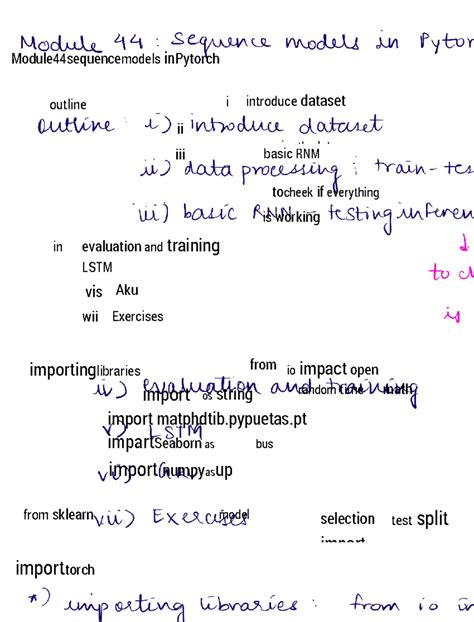 Module 44 : Sequence models in Pytor
Module44sequencemodels inPytorch
outline i introduce dataset
outline : i) introduce dataset
ii
iii basic RNM
ii) data processing : train-tes
tocheek if everything
iii) basic RNN - testing inferen
is working
in evaluation and training
LSTM
to ch
vis Aku
is
wii Exercises
importinglibraries from io impact open
iv) evaluation and training
import os string random time math
import matphdtib.pypuetas.pt
v) LSTM
impartSeaborn as bus
import(numpyasup
from sklearn model selection test split
vii) Exercises
import
importtorch
*) importing libraries : from io im